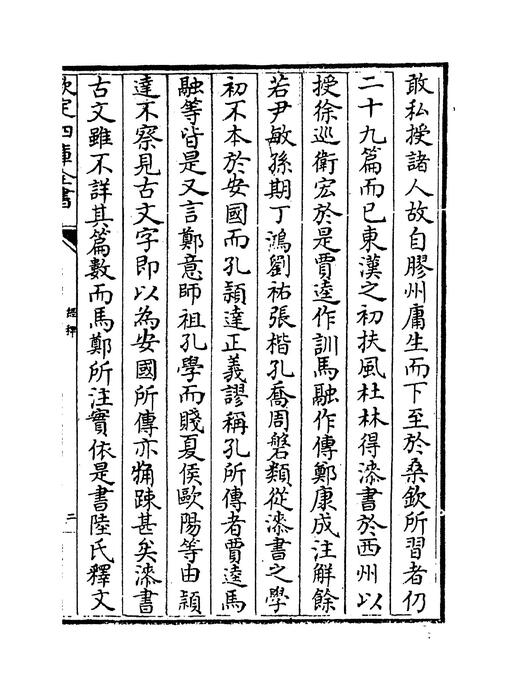 敢私授諸人故自膠州庸生而下至於桑欽所習者仍
二十九篇而已東漢之初扶風杜林得漆書於西州以
授徐巡衛宏於是賈逵作訓馬融作傳鄭康成注解餘
若尹敏孫期丁鴻劉祐張楷孔喬周磐類從漆書之學
初不本於安國而孔頴達正義謬稱孔所傳者賈逵馬
融等皆是又言鄭意師祖孔學而賤夏侯歐陽等由頴
達不察見古文字即以為安國所傳亦觕踈甚矣漆書
古文雖不詳其篇數而馬鄭所注實依是書陸氏釋文
欽定四庫全書
經稗
二